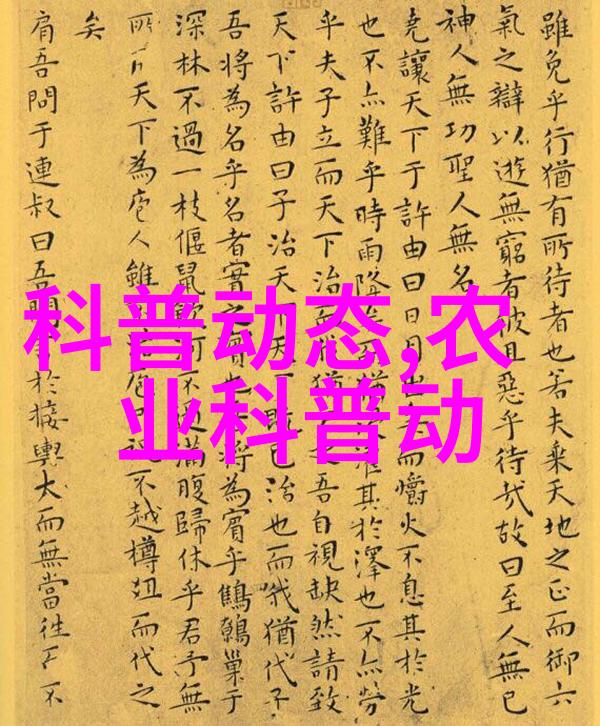 科普动态,农
业科普动
雖免乎行猶有所待者也若夫乘天地之正而御六
氣之辯以遊無窮者彼且惡乎待哉故曰至人無己
神人無功聖人無名
堯讓天下于許由曰日月出而爝火不息其於光
也不亦難乎時雨降矣猶浸灌其於澤也不亦勞
乎夫子立而天下治而我猶之吾自視缺然請致
天下許由曰子治天下天下既已治也而我猶代子
吾將為名乎名者實之賓也將為賓乎鷦鷯巢于
深林不過一枝偃鼠飲河不過滿腹歸休乎君予無
所天下為庖人雖不庖不越樽俎而代之
矣
肩吾問于連叔曰吾聞於接輿大而無當往而不